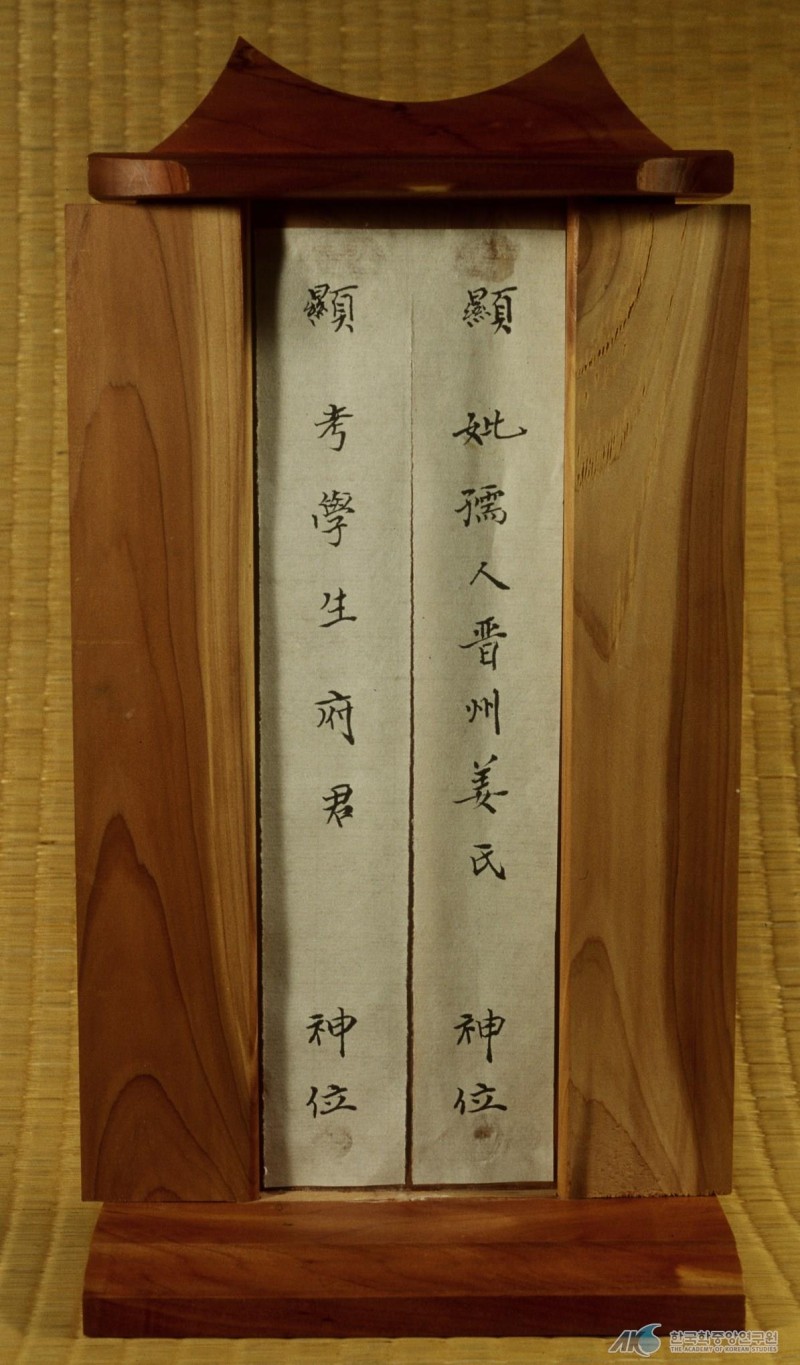 顯妣孺人晋州姜氏神位
顯考學生府君神位
한국학중앙연구원
THE ACADEMY OF KOREAN STUDIES